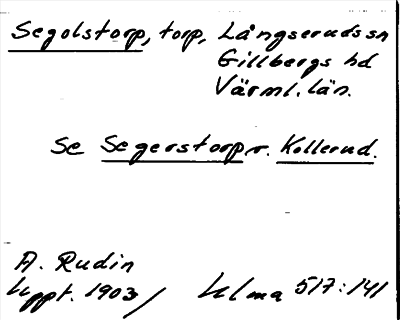 Segolstorp, torp, Långseruds sn
Gillbergs hd
Värml. län.
Se Segerstorp r. Kollerud.
A. Rudin
Uppt. 1903 / Ulma 517:141